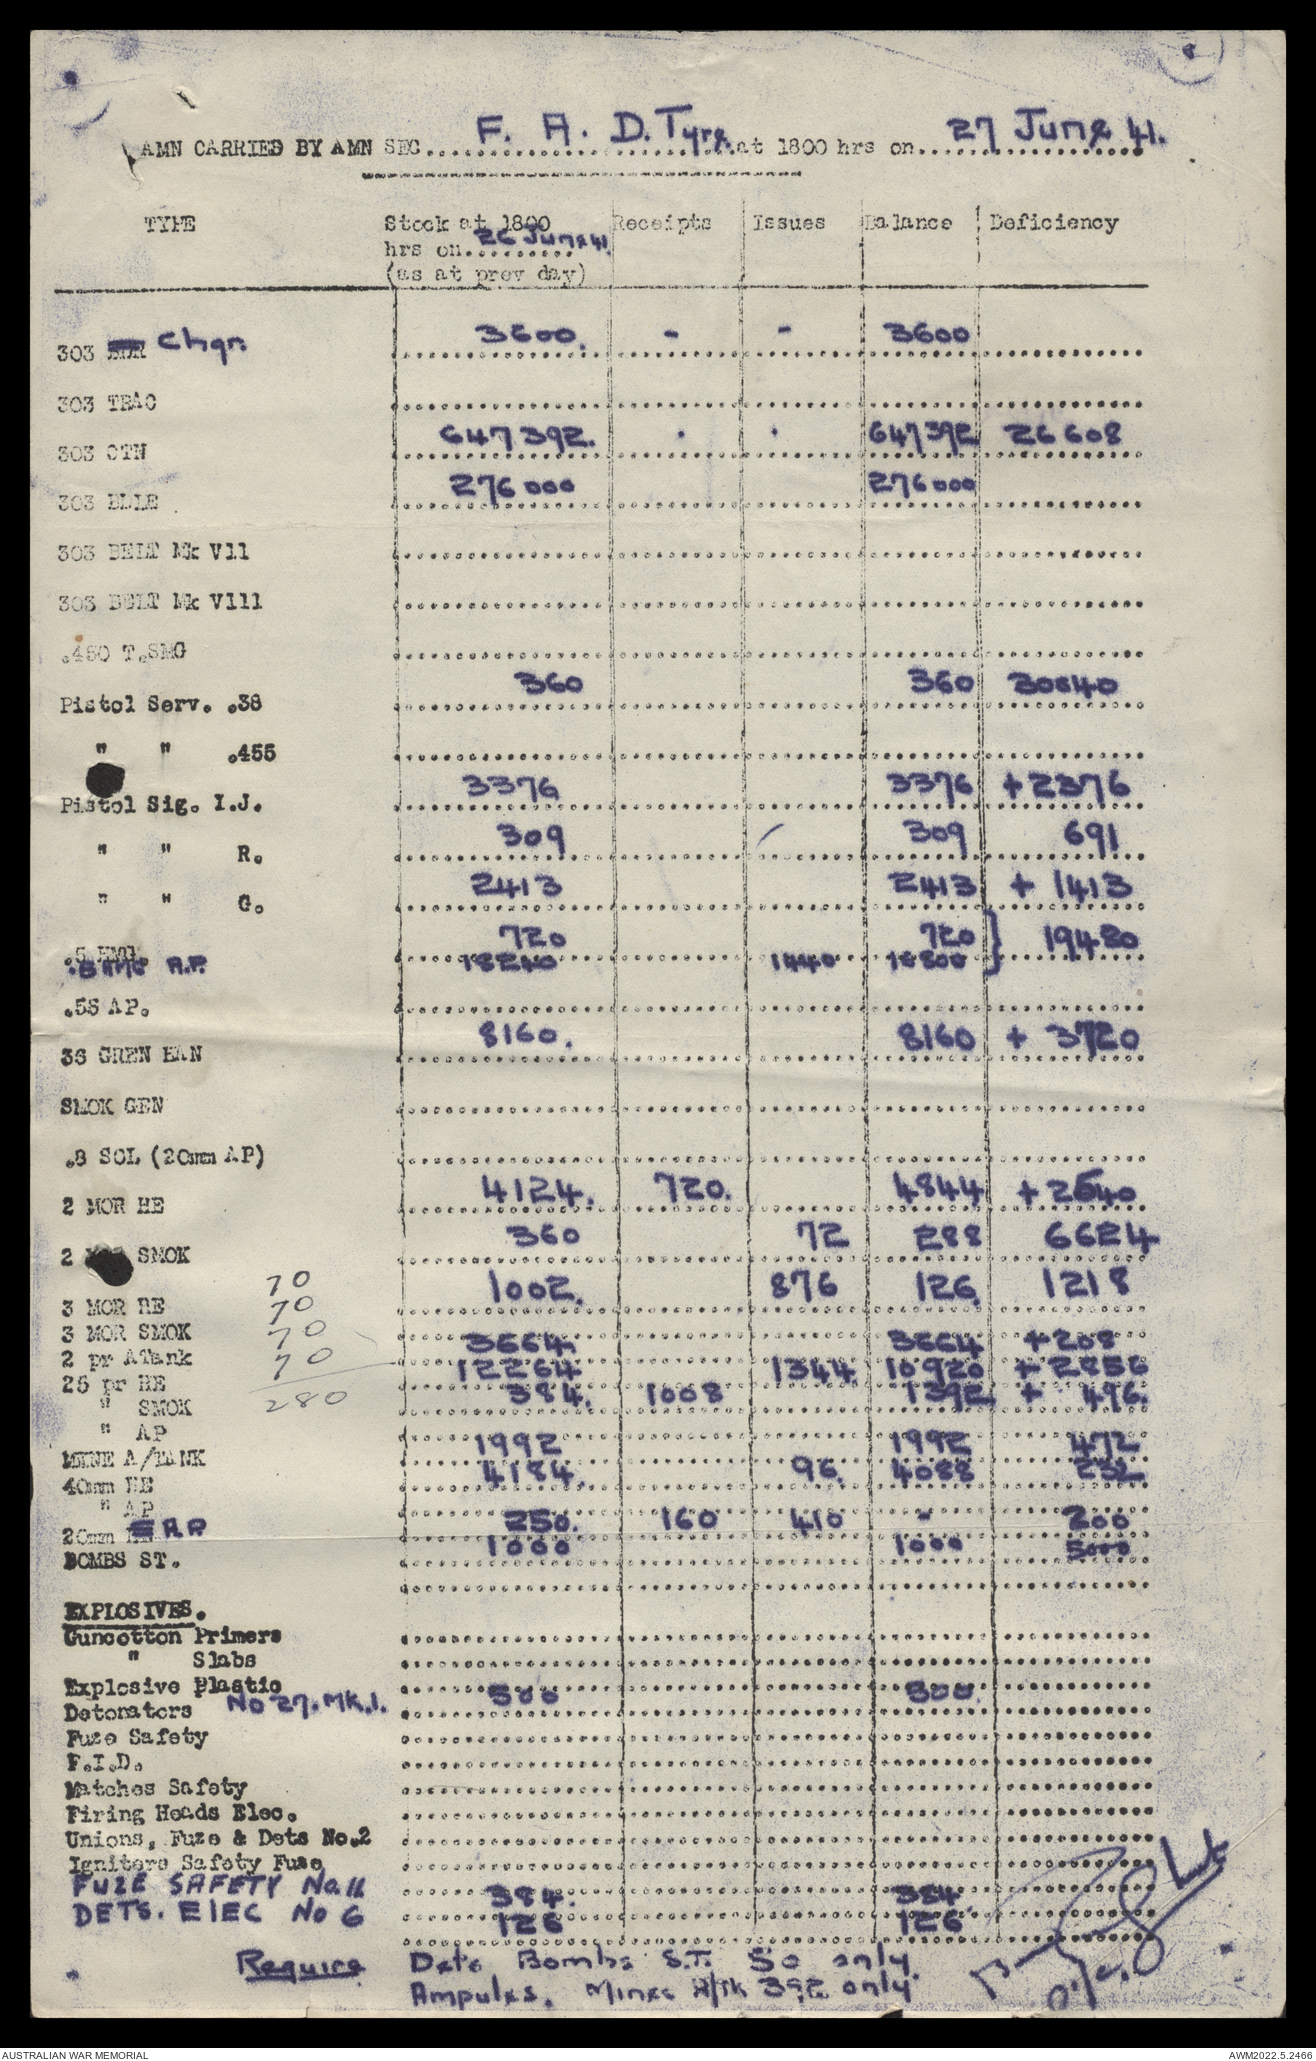 AMN CARRIED BY AMN SEC F. A. D. Tyre at 1800 hrs on 27 June 41.
TYPE Stock at 1800 Receipts Issues Balance Deficiency
hrs on 26 June 41
(as at prev day)
303 Chgr. 3600. - - 3600
303 TRAC
303 CTN 647392. . . 647392 26608
303 BLLE 276000 276000
303 BELT Mk V11
303 BELT Mk V111
.450 T.SMG
Pistol Serv. .38 360 360 30840
" " .455
Pistol Sig. I.J. 3376 3376 +2376
" " R. 309 309 691
" " G. 2413 2413 + 1413
720 720 } 19480
A.P. 18240 1440 16800
.55 AP.
36 GREN HAN 8160. 8160 + 3720
SMOK GEN
.8 SOL (20mm AP)
2 MOR HE 4124. 720. 4844 +2540
2 SMOK 360 72 288 6624
70
3 MOR HE 70 1002. 876 126 1218
3 MOR SMOK 70 3664. 3664 +208
2 pr ATank 70 12264 1344 10920 +2856
25 pr HE 384. 1008 1392 + 496.
" SMOK 280
" AP 1992 1992 472
MINE A/TANK 4184. 96. 4088 232
40mm HE
" AP 250. 160 410 - 200
20mm A.P. 1000 1000 5000
BOMBS ST.
EXPLOSIVES.
Guncotton Primers
" Slabs
Explosive Plastic 500 500.
Detonators No 27. Mk.1.
Fuze Safety
F.I.D.
Matches Safety
Firing Heads Elec.
Unions, Fuze & Dets No.2
Igniters Safety Fuze
FUZE SAFETY No 11 384. 384
DETS. ElEC No 6 126 126
Require Dets Bombs S.T. 50 only.
Ampules. Mines A/Tk 392 only.
AUSTRALIAN WAR MEMORIAL AWM2022.5.2466